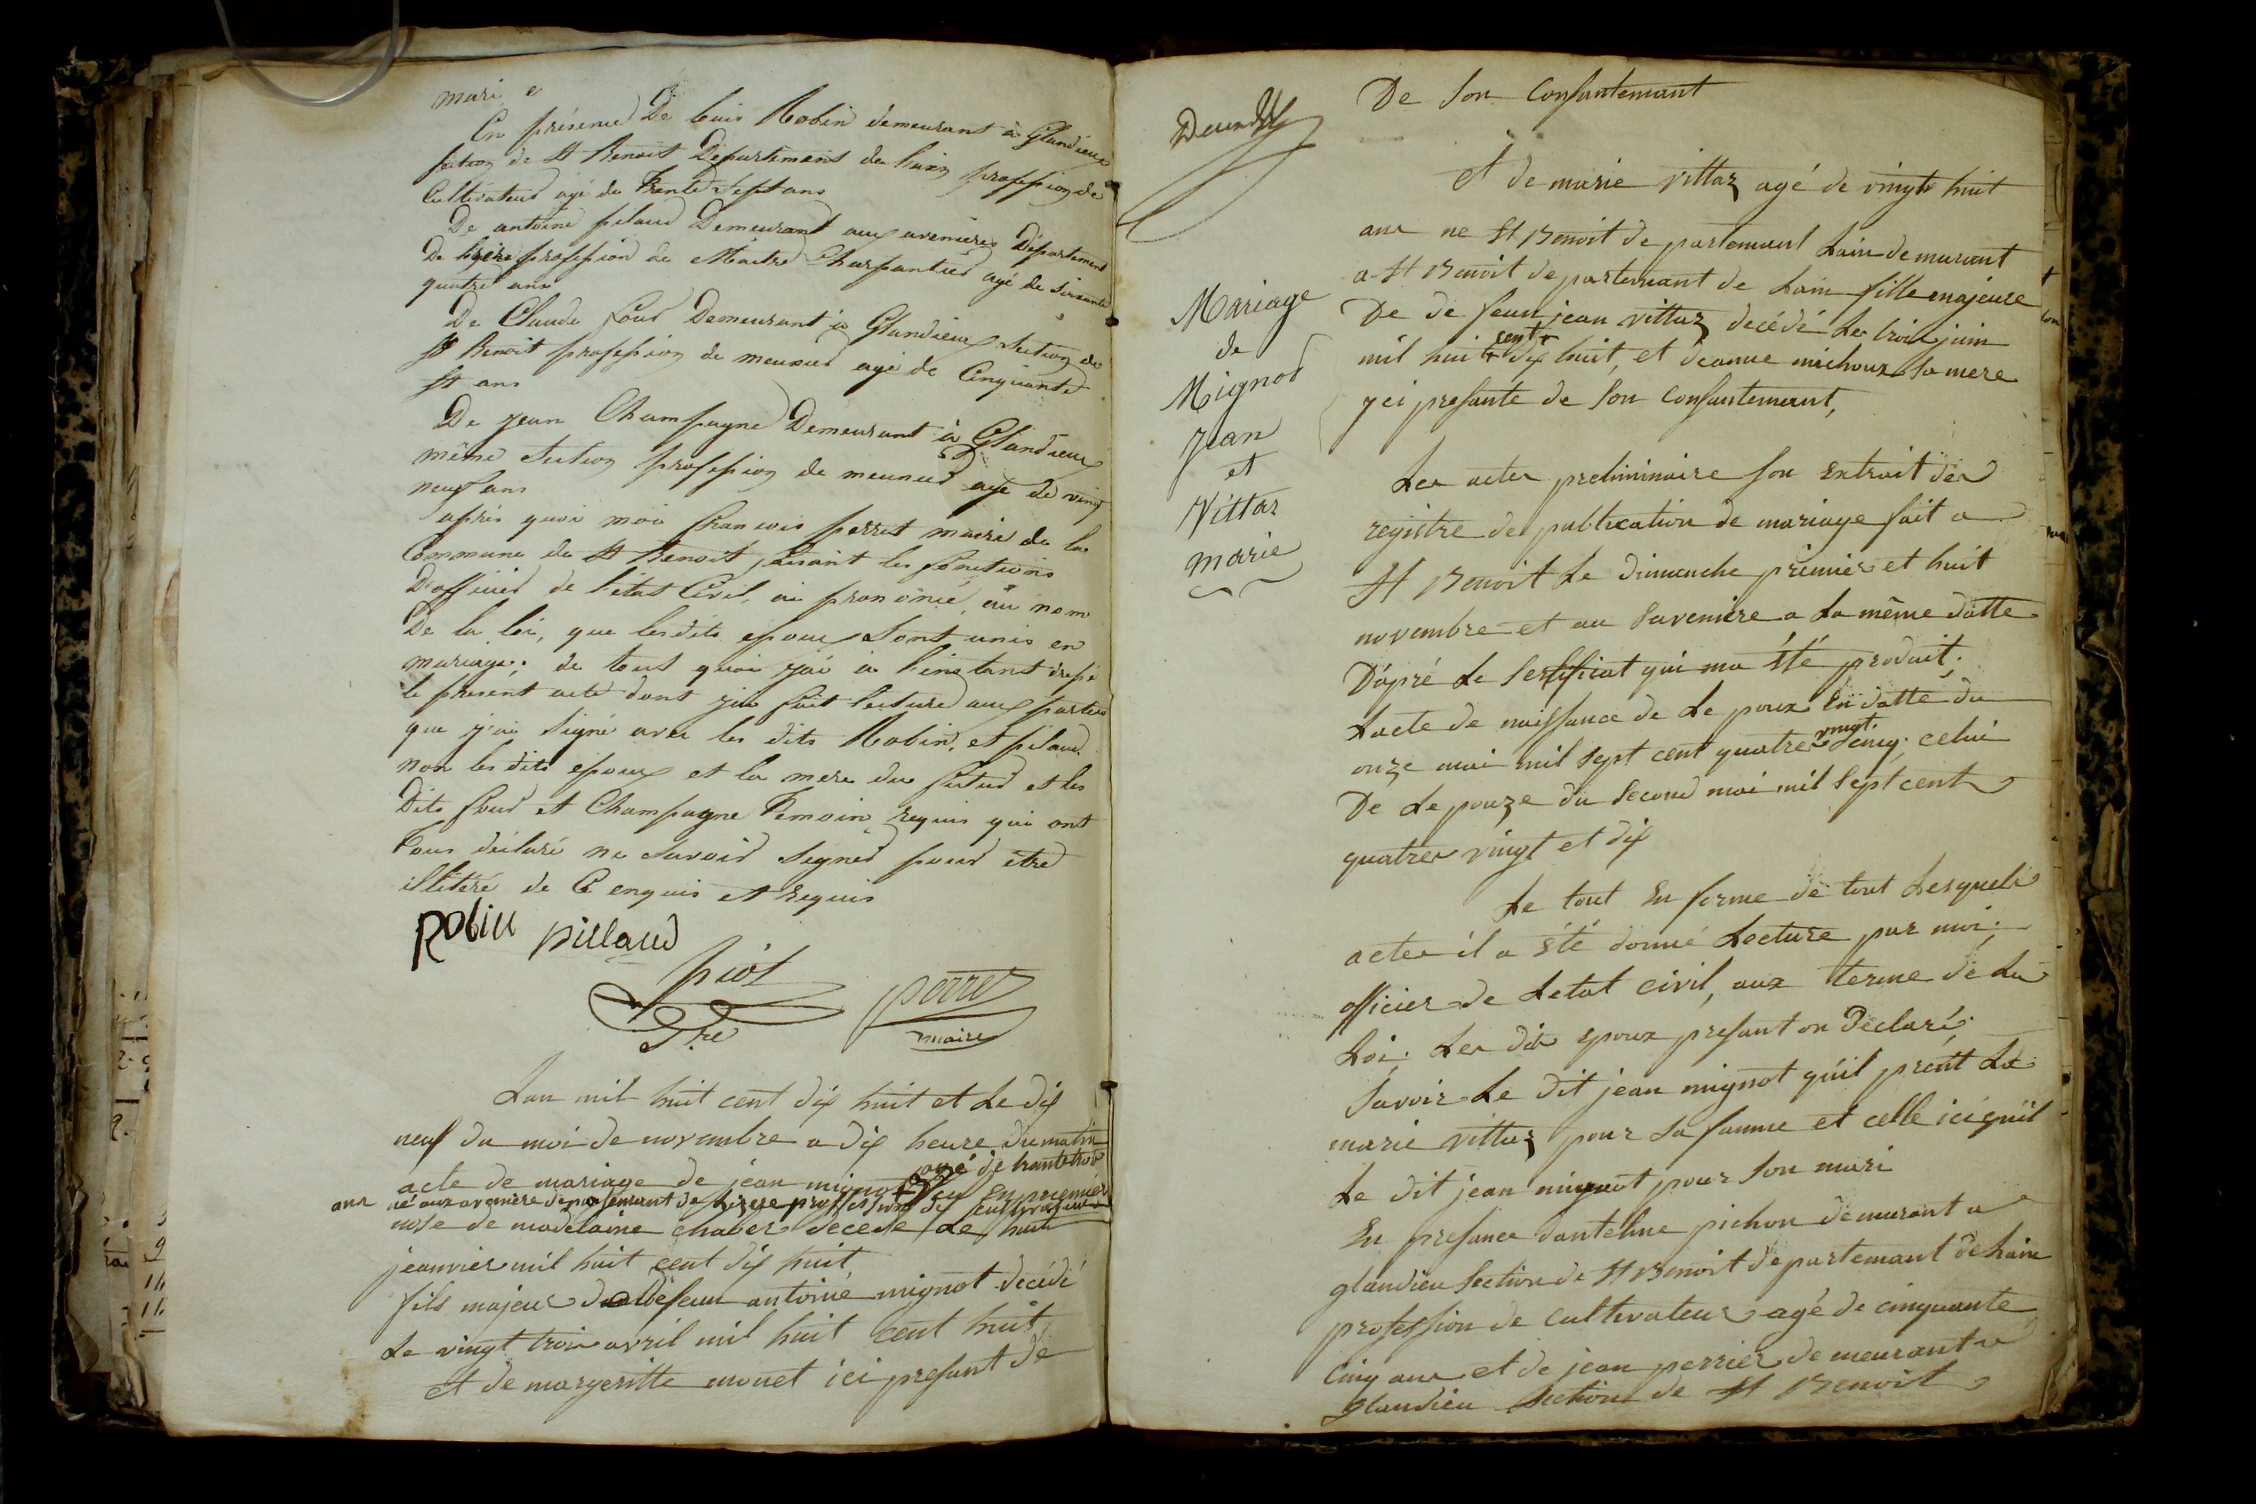 mari
En présence De Louis Robin demeurant à Glandieux
section de St Benoit Département de L'ain profession de
Cultivateur agé de Trente sept ans
De antoine pilaud Demeurant aux avenieres Département
De l'isère profession de Maitre Charpantier agé de soixante
quatre ans
De Claude four Demeurant à Glandieux Section de
St Benoit profession de meunier agé de Cinquante
 ans
De jean Champagne Demeurant à Glandieux
même Section profession de meunier agé de vingt
neuf ans
après quoi moi francois perret maire de la
Commune de St Benoit, faisant les fonctions
D'officier de l'état Civil, ai prononcé, au nom
De la loi, que lesdits epoux Sont unis en
mariage; de tout quoi j'ai à l'instant
le present acte dont j'ai fait lecture aux parties
que j'ai Signé avec les dits Robin, et pilaud
non les dits epoux et la mere du futur et les
Dits four et Champagne Temoin requis qui ont
Tous déclaré ne Savoir Signer pour être
illitéré de Ce enquis et requis
Robin pillaud
piot perret
maire
Lan mil huit cent dix huit et Le dix
neuf du moi de novembre a dix heure du matin
agé de trante trois
acte de mariage de jean mignot en premier
ans né aux aveniere departemant de Lizere profession de cultivateur
nose de madelaine Chaber decede Le huit
jeanvier mil huit cent dix huit
fils majeur de feu antoine mignot décédé
Le vingt troi avril mil huit cent huit
et de margeritte monet ici presant de
De Son Consantemant
Mariage
de
Mignot
jean
et
Vittaz
marie
et de marie vittaz agé de vingt huit
ans ne St Benoit departemant Lain demurant
a St Benoit departemant de Lain fille majeure
De de feu jean vittaz decédé Le troix juin
cent
mil huit dix huit, et deanne michoux Sa mere
y ci presante de Son Consantemant,
Les actes preliminaire Son Extrait des
registre de publication de mariage fait a
St Benoit Le dimanche premier et huit
novembre et au Saveniere a La même datte
D'apré Le Sertificat qui ma été produit;
Lacte de naissance de Le poux En datte du
vingt
onze mai mil Sept cent quatre cinq; celui
De Le pouze du Second mai mil Sept cent
quatre vingt et dix
Le tout En forme de tout Lesquels
actes il a été donné Lecture par moi;
officier de Letat civil, aux terme de La
Loi; Les dis epoux presant on Déclaré;
Savoir Le dit jean mignot quil prent La
marie vittaz pour Sa famme et celle ici quil
Le dit jean mignot pour Son mari
En presance dantelme pichon demurant a
glandieu Section de St Benoit departemant de Lain
profession de Cultivateur agé de cinquante
cinq ans et de jean perrier demeurant a
glandieu Section de St Benoit